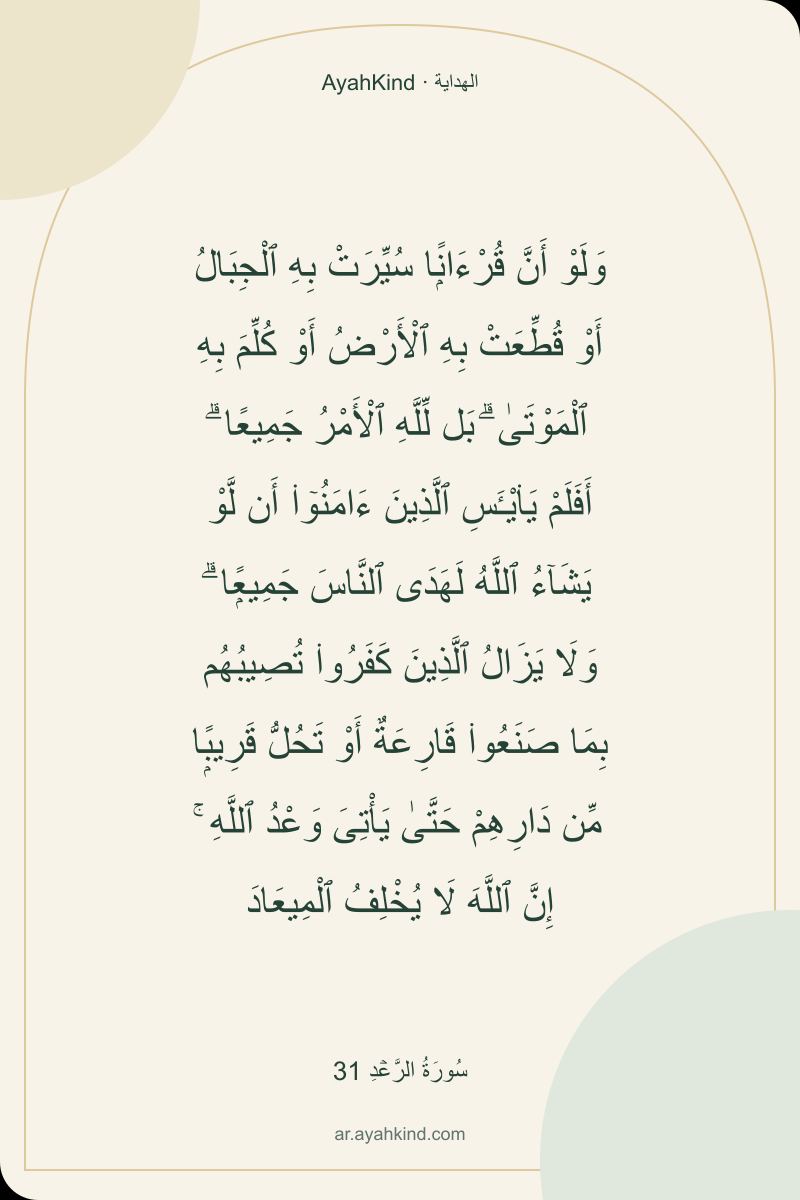 AyahKind · الهداية
وَلَوْ أَنَّ قُرْءَانًۭا سُيِّرَتْ بِهِ ٱلْجِبَالُ
أَوْ قُطِّعَتْ بِهِ ٱلْأَرْضُ أَوْ كُلِّمَ بِهِ
ٱلْمَوْتَىٰ ۗ بَل لِّلَّهِ ٱلْأَمْرُ جَمِيعًا ۗ
أَفَلَمْ يَا۟يْـَٔسِ ٱلَّذِينَ ءَامَنُوٓا۟ أَن لَّوْ
يَشَآءُ ٱللَّهُ لَهَدَى ٱلنَّاسَ جَمِيعًۭا ۗ
وَلَا يَزَالُ ٱلَّذِينَ كَفَرُوا۟ تُصِيبُهُم
بِمَا صَنَعُوا۟ قَارِعَةٌ أَوْ تَحُلُّ قَرِيبًۭا
مِّن دَارِهِمْ حَتَّىٰ يَأْتِىَ وَعْدُ ٱللَّهِ ۚ
إِنَّ ٱللَّهَ لَا يُخْلِفُ ٱلْمِيعَادَ
سُورَةُ الرَّعۡدِ 31
ar.ayahkind.com